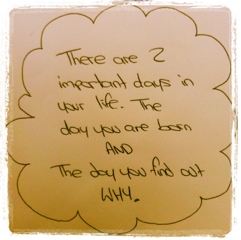 There are 2
important days in
your life. The
day you are born
AND
The day you find out
WHY.